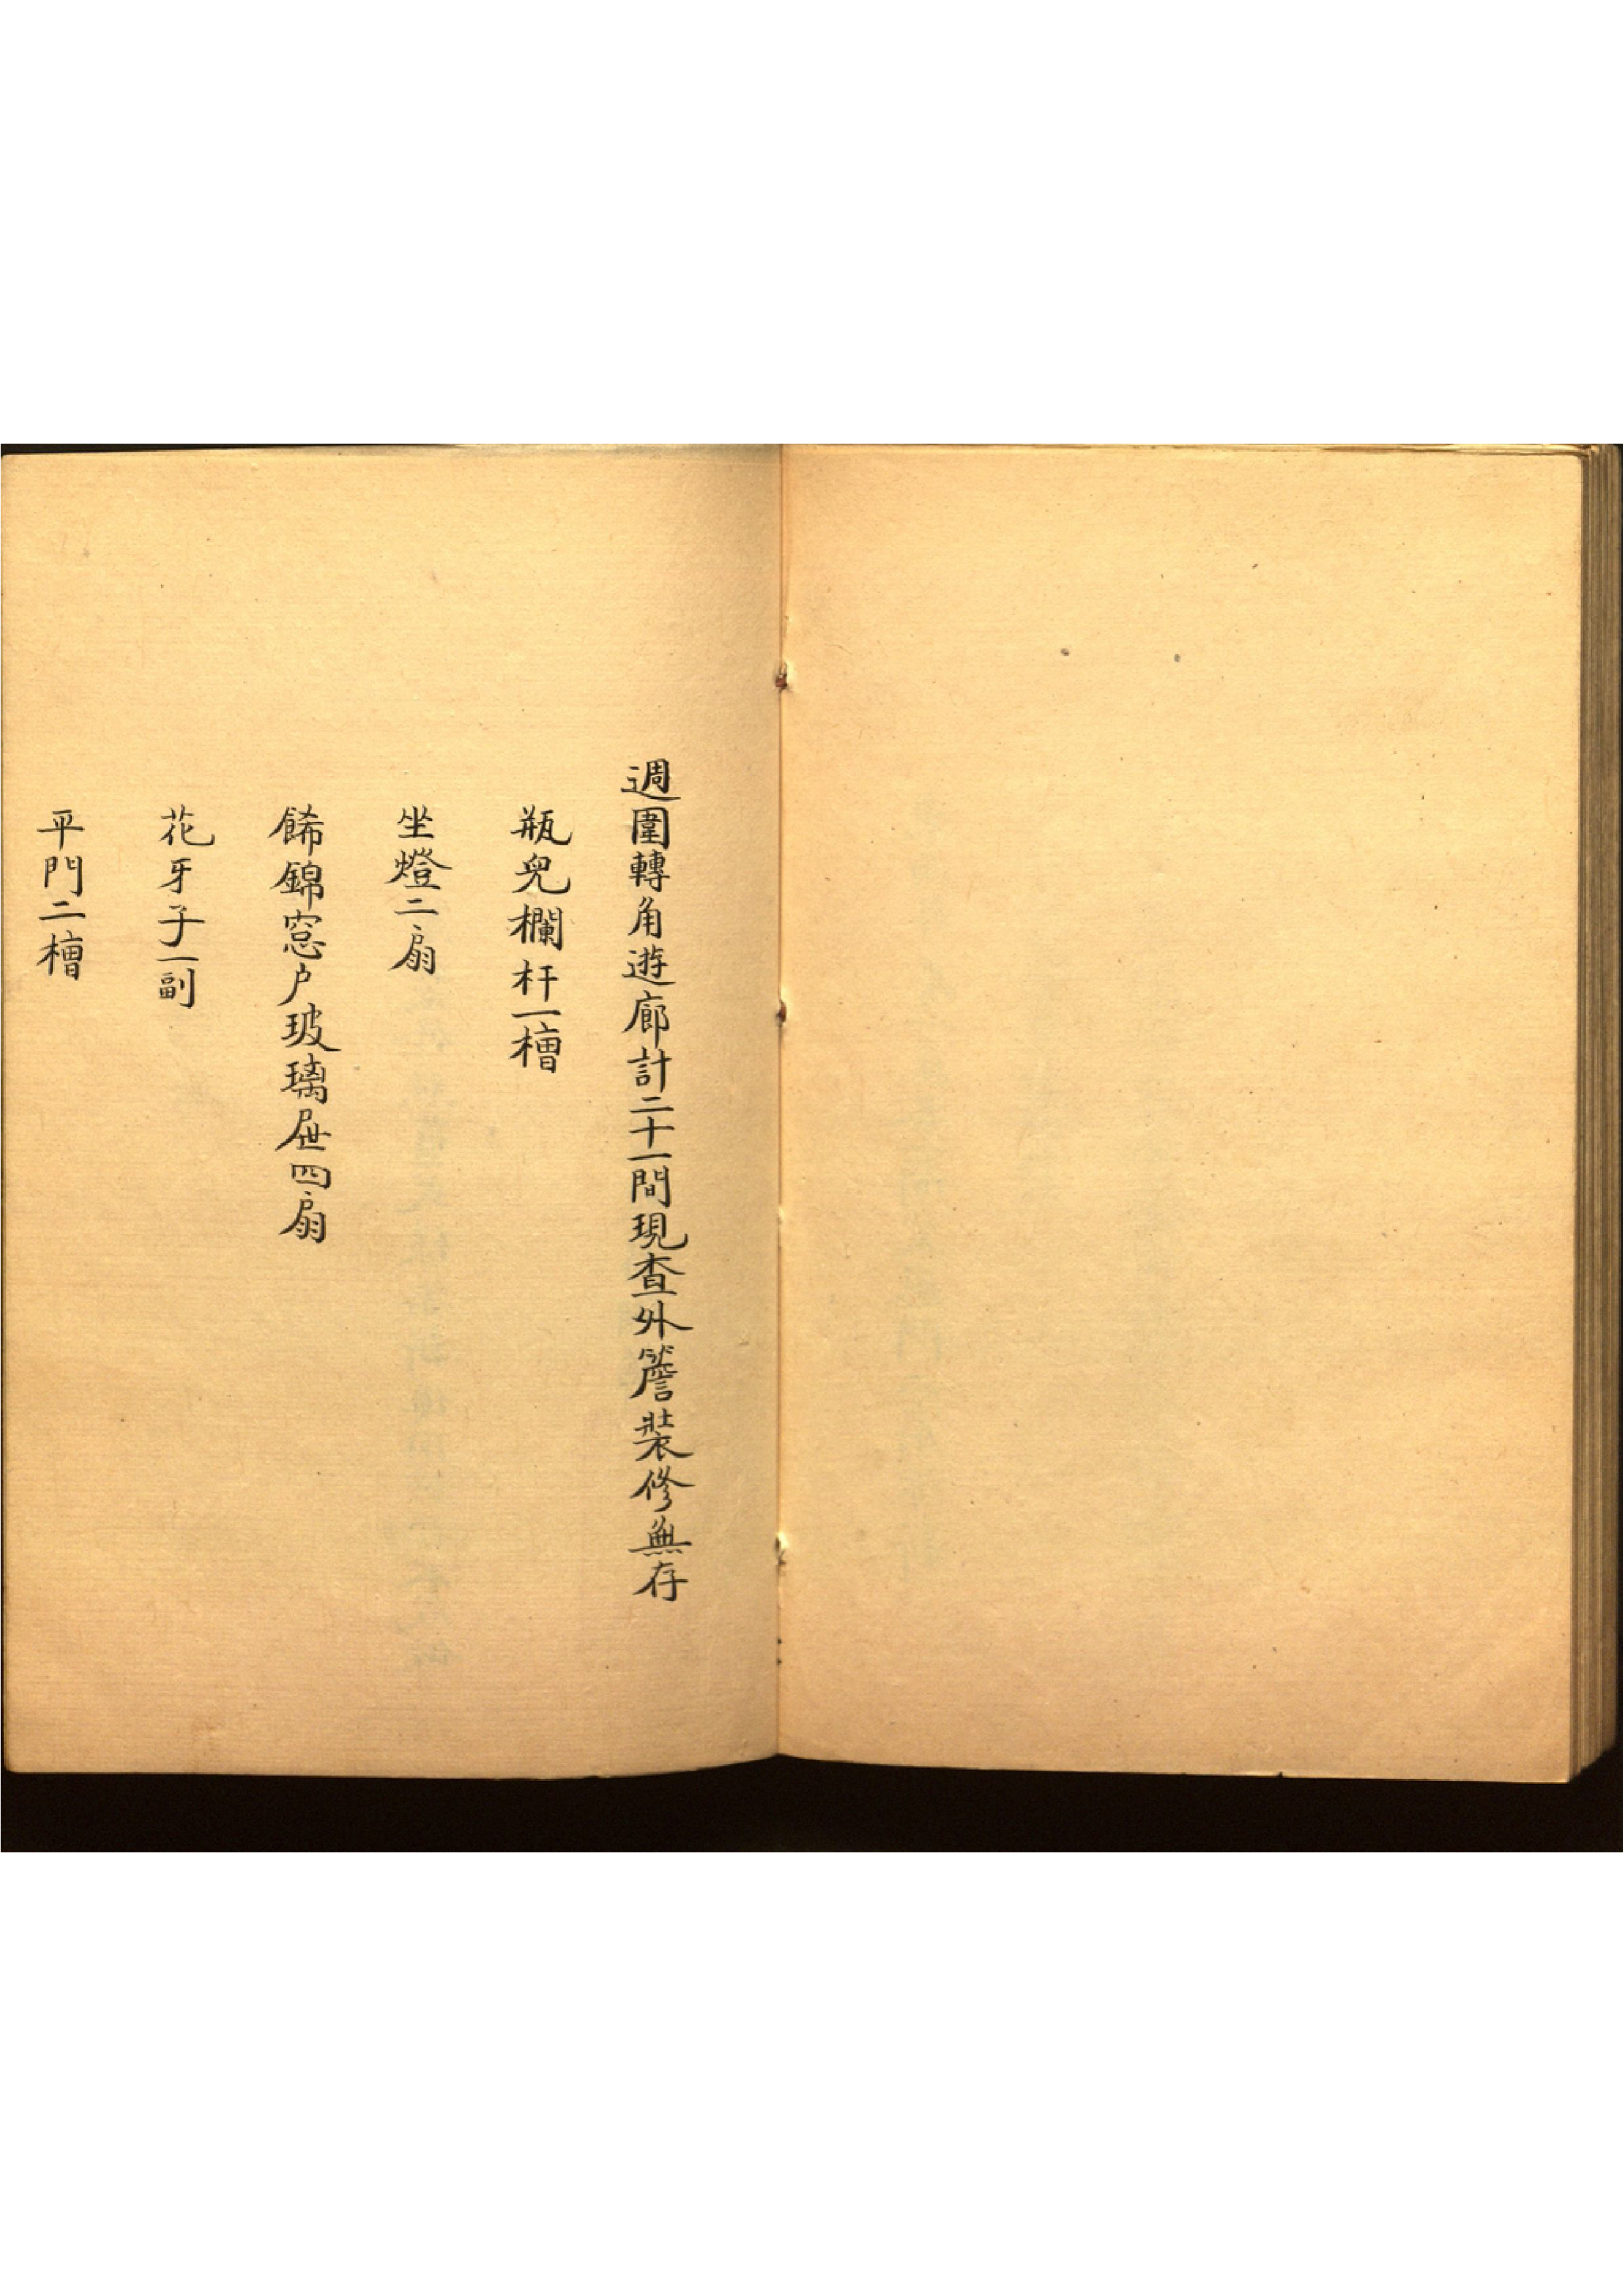 週圍轉角遊廊計二十一間現查外簷裝修無存
瓶兒欄杆一槽
坐燈二扇
餙錦窓户玻璃屉四扇
花牙子一副
平門二槽